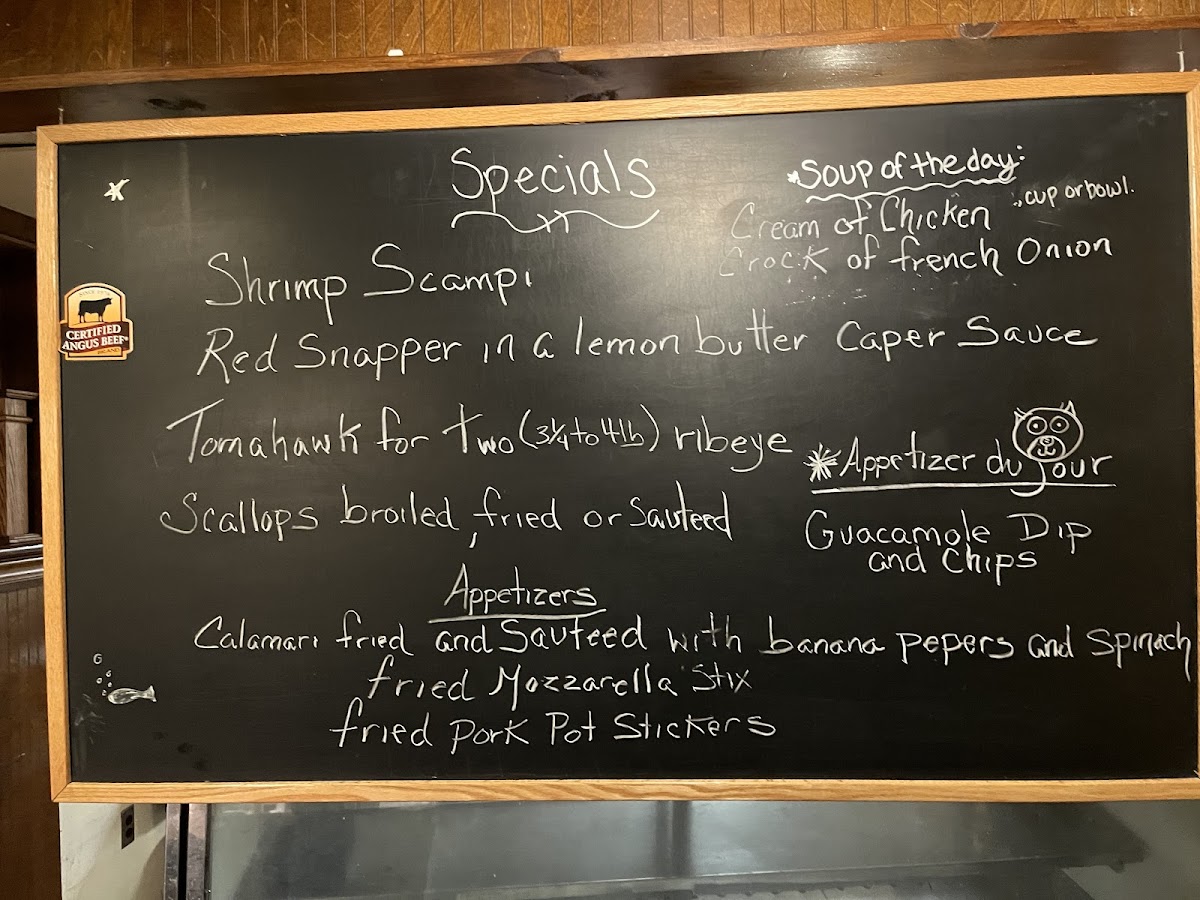 Specials
Shrimp Scampi
Red Snapper in a lemon butter Caper Sauce
Tomahawk for two (3¼ to 4lb) ribeye
Scallops broiled, fried or Sauteed
*Soup of the day:
Cream of Chicken
cup or bowl.
Crock of french Onion
*Appetizer du Jour
Guacamole Dip
and Chips
Appetizers
Calamari fried and Sauteed with banana pepers and Spinach
fried Mozzarella Stix
fried Pork Pot Stickers
CERTIFIED
ANGUS BEEF®
BRAND